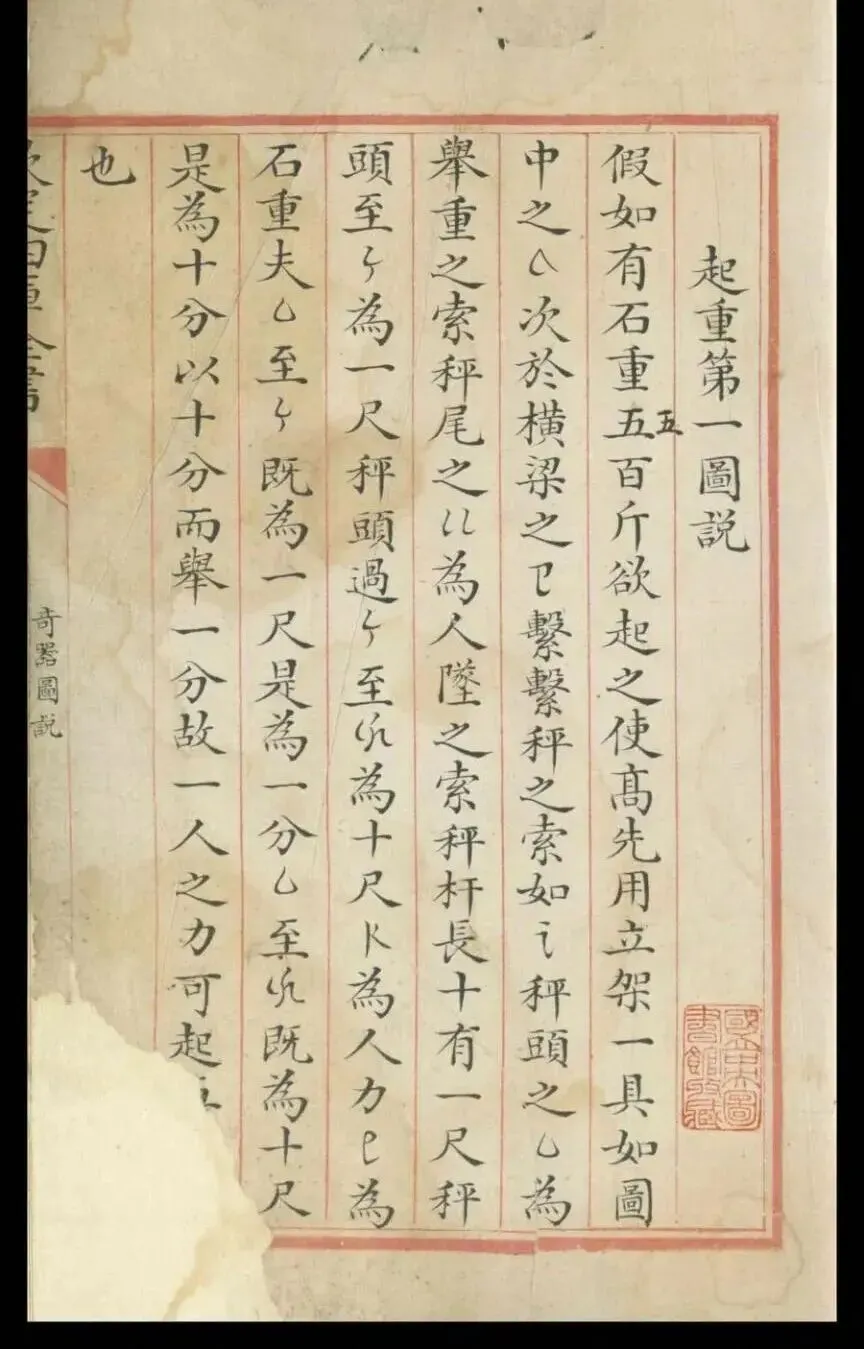 起重第一圖説
假如有石重五百斤欲起之使髙先用立架一具如圖
五
中之㇈次於横梁之㔾繫繫秤之索如讠秤頭之乚為
舉重之索秤尾之㇄㇄為人墜之索秤杆長十有一尺秤
頭至为一尺秤頭過至為十尺為人力為
石重夫至既為一尺是為一分至既為十尺
是為十分以十分而舉一分故一人之力可起五
也
欽定四庫全書
奇器圖説
國立中央圖書館收藏